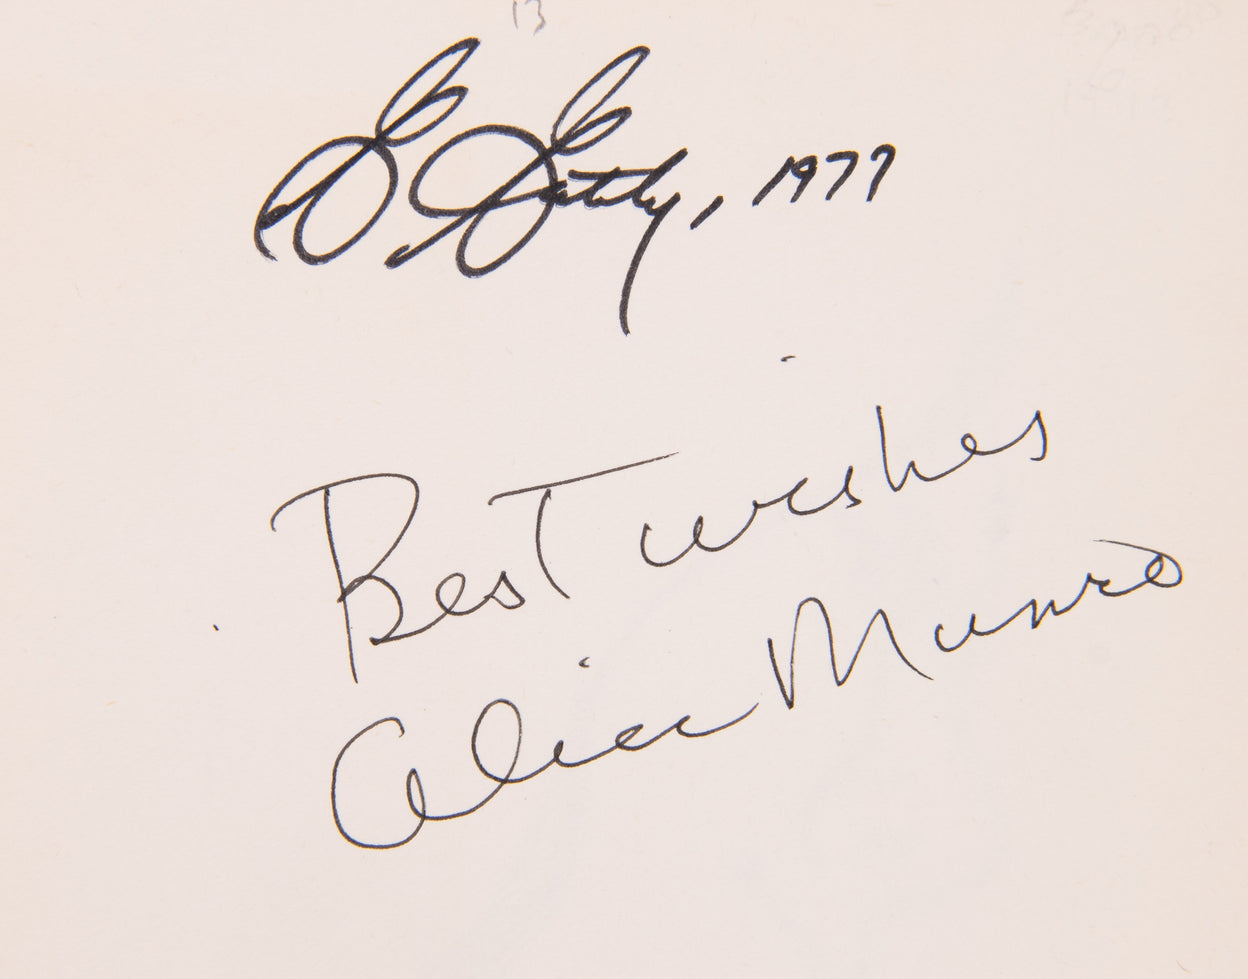 13
G. Gately, 1977
Best wishes
Alice Munro